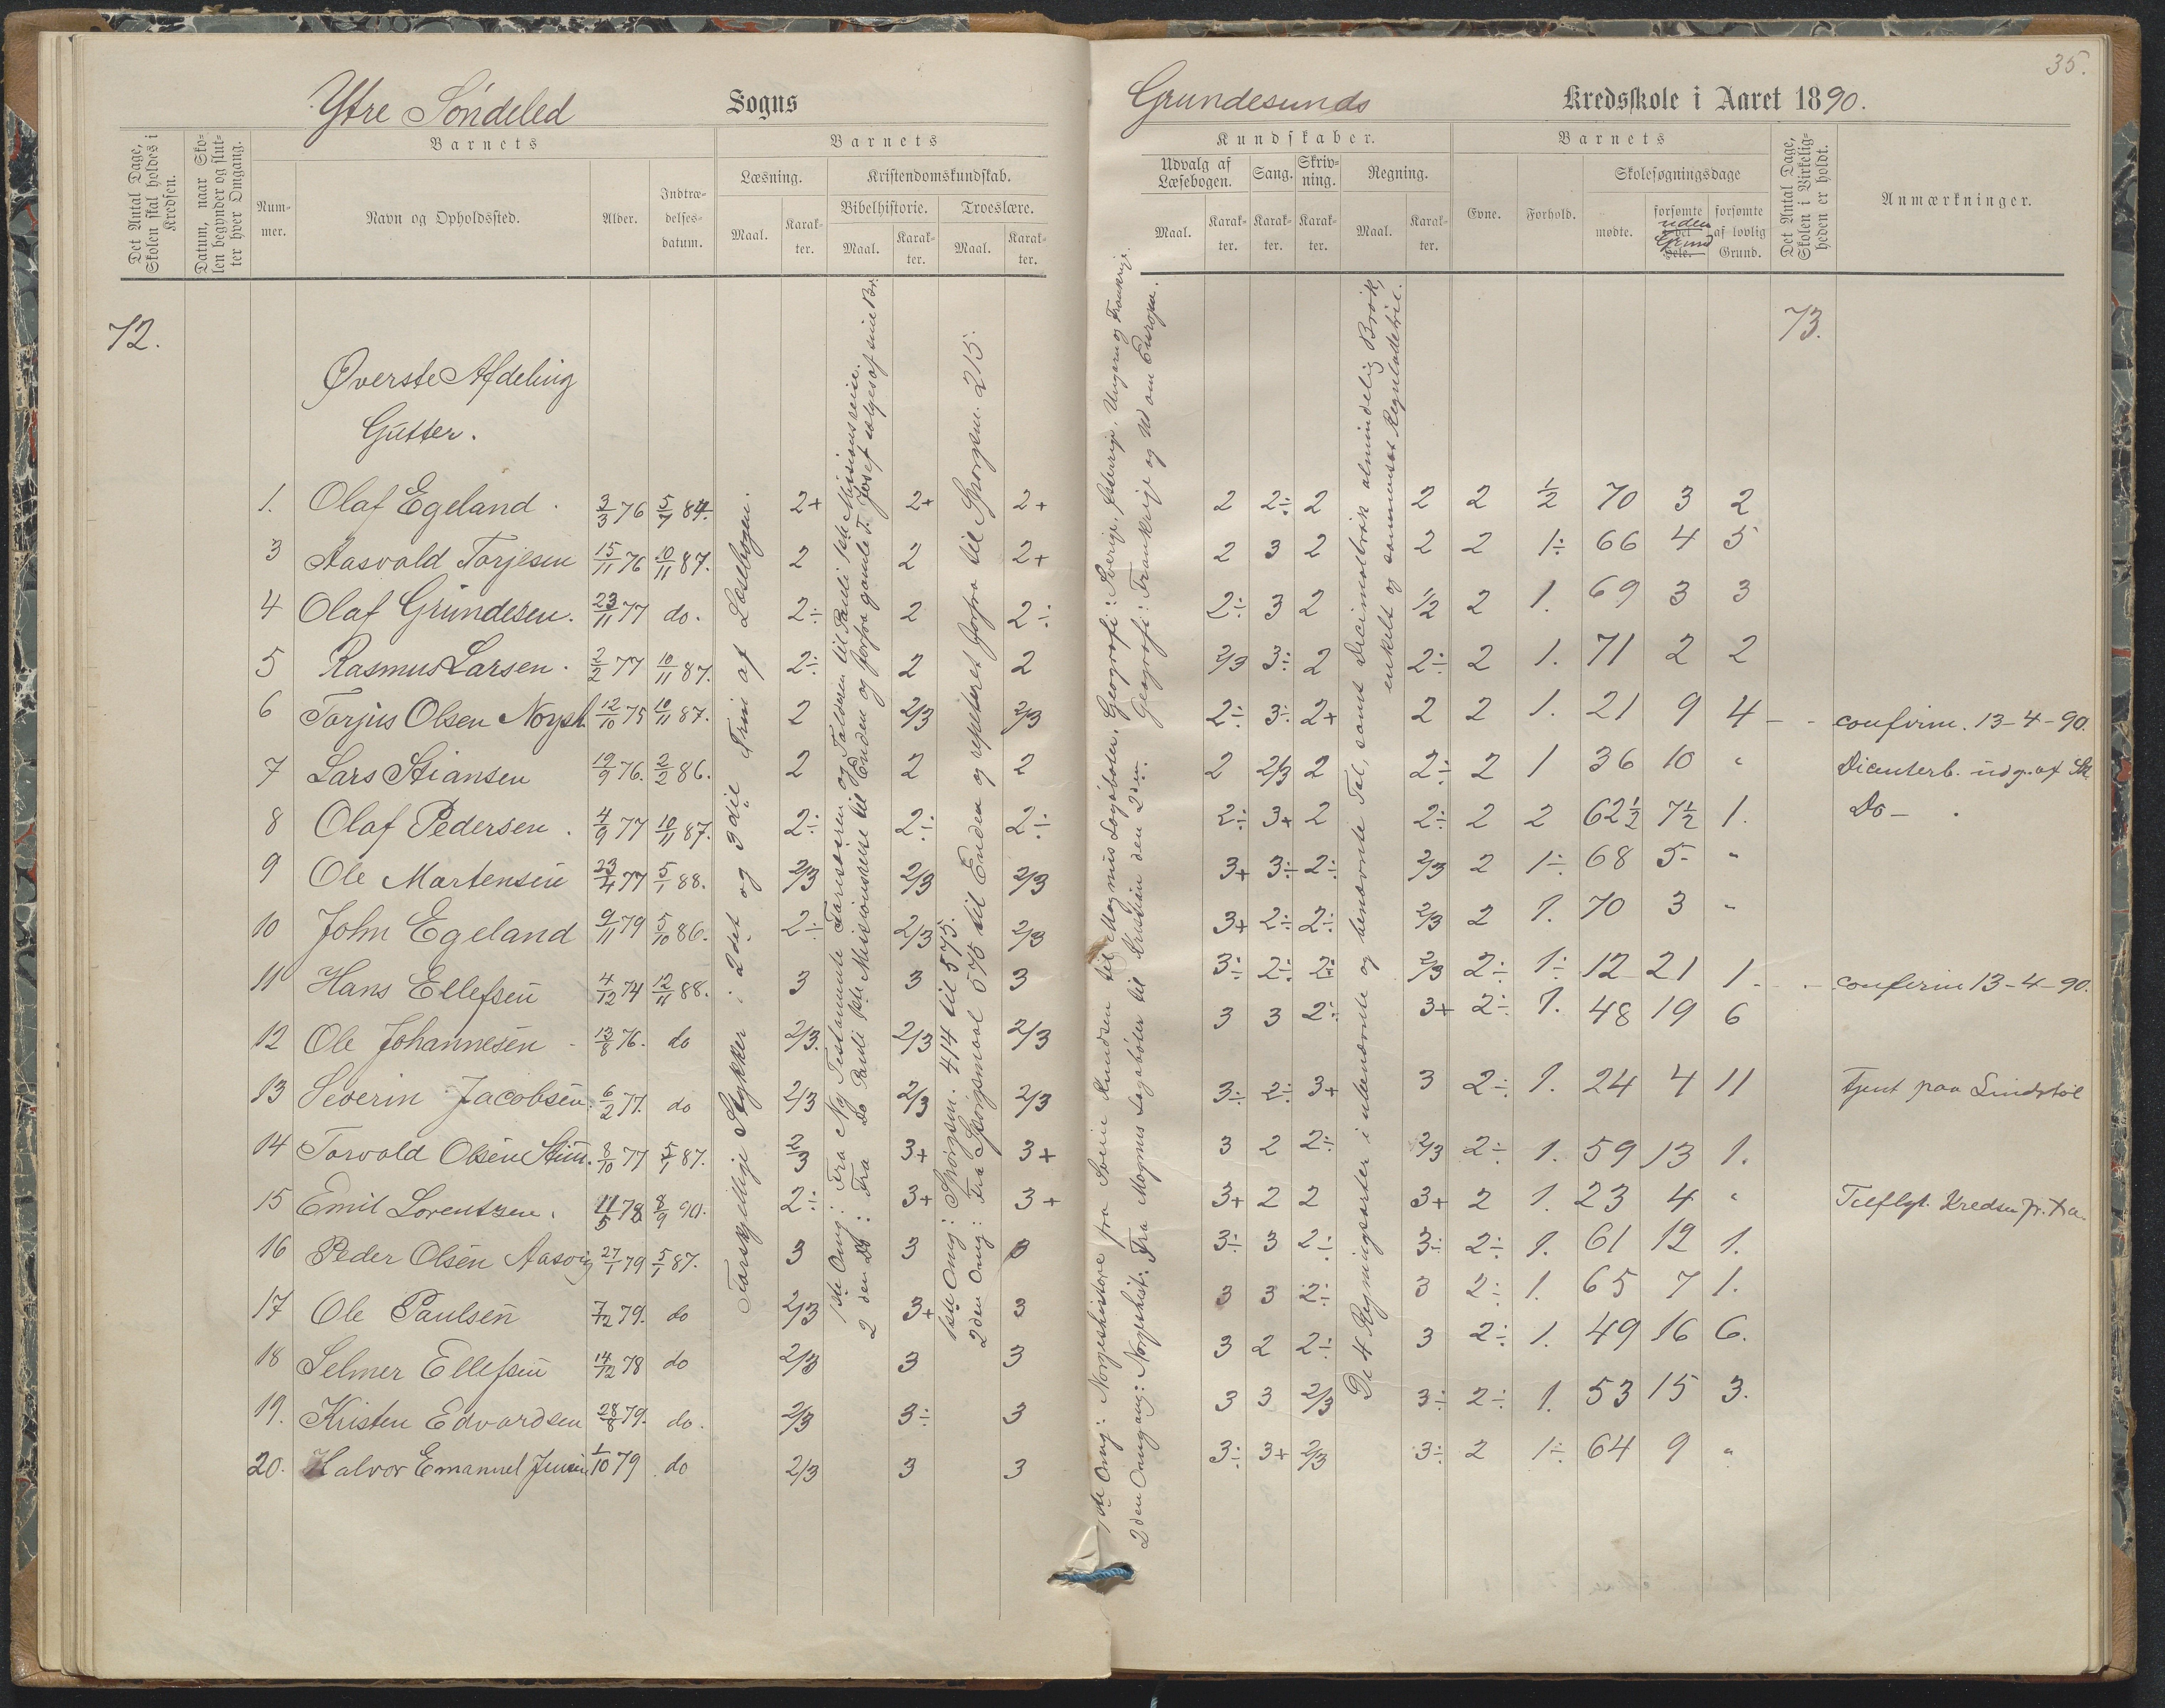 35.
Ytre Søndeled Sogns
Grundesunds Kredsskole i Aaret 1890.
Det Antal Dage, Skolen skal holdes i Kredsen.
Datum, naar Skolen begynder og slutter hver Omgang.
Barnets
Nummer.
Navn og Opholdssted.
Alder.
Indtrædelsesdatum.
Barnets
Læsning.
Maal.
Karakter.
Kristendomskundskab.
Bibelhistorie.
Maal.
Karakter.
Troeslære.
Maal.
Karakter.
Kundskaber.
Udvalg af Læsebogen.
Maal.
Karakter.
Sang.
Karakter.
Skrivning.
Karakter.
Regning.
Maal.
Karakter.
Barnets
Evne.
Forhold.
Skolesøgningsdage
mødte.
forsømte uden Grund
forsømte af lovlig Grund.
Det Antal Dage, Skolen i Virkeligheden er holdt.
Anmærkninger.
72.
73.
Øverste Afdeling
Gutter.
1. Olaf Egeland. 3/3 76 5/7 84. 2+ 2+ 2+ 2 2÷ 2 2 2 1/2 70 3 2
3 Aasvald Torjesen 15/11 76 10/11 87. 2 2 2+ 2 3 2 2 2 1÷ 66 4 5
4 Olaf Grundesen. 23/11 77 do. 2÷ 2 2÷ 2÷ 3 2 1/2 2 1. 69 3 3
5 Rasmus Larsen. 2/2 77 10/11 87. 2÷ 2 2 2/3 3÷ 2 2÷ 2 1. 71 2 2
6 Torjus Olsen 12/10 75 10/11 87. 2 2/3 2/3 2÷ 3÷ 2+ 2 2 1. 21 9 4 - - confirm. 13-4-90.
7 Lars Stiansen 19/9 76. 2/2 86. 2 2 2 2 2/3 2 2÷ 2 1 36 10 " udg. af
8 Olaf Pedersen. 4/9 77 10/11 87. 2÷ 2÷ 2÷ 2÷ 3+ 2 2÷ 2 2 62½ 7½ 1. Do -
9 Ole Martensen 23/4 77 5/1 88. 2/3 2/3 2/3 3+ 3÷ 2÷ 2/3 2 1÷ 68 5- "
10 John Egeland 9/11 79 5/10 86. 2÷ 2/3 2/3 3+ 2÷ 2÷ 2/3 2 1. 70 3 "
11 Hans Ellefsen 4/12 74 12/11 88. 3 3 3 3÷ 2÷ 2÷ 2/3 2÷ 1÷ 12 21 1 - - confirm 13-4-90.
12 Ole Johannesen 13/8 76. do 2/3. 2/3 2/3 3 3 2÷ 3+ 2÷ 1. 48 19 6
13 Severin Jacobsen. 6/2 77. do 2/3 2/3 2/3 3÷ 2÷ 3+ 3 2÷ 1. 24 4 11 tjent paa Lindstøl
14 Torvald Olsen 8/10 77 5/1 87. 2/3 3+ 3+ 3 2 2÷ 2/3 2÷ 1. 59 13 1.
15 Emil Lorentzen. 11/5 78 8/9 90. 2÷ 3+ 3+ 3+ 2 2 3+ 2 1. 23 4 " Kredsen
16 Peder Olsen Aasvig 27/1 79 5/1 87. 3 3 3 3÷ 3 2÷ 3÷ 2÷ 1. 61 12 1.
17 Ole Paulsen 7/12 79. do 2/3 3+ 3 3 3 2÷ 3 2÷ 1. 65 7 1.
18 Selmer Ellefsen 14/12 78 do 2/3 3 3 3 2 2÷ 3 2÷ 1. 49 16 6.
19. Kristen Edvardsen 28/8 79. do. 2/3 3÷ 3 3 3 2/3 3÷ 2÷ 1. 53 15 3.
20. Halvor Emanuel Jensen 1/10 79 do 2/3 3 3 3÷ 3+ 2/3 3÷ 2 1÷ 64 9 "
Forskjellige Stykker i 2det og 3die Trin af Læsebogen.
1ste Omg: Fra Ny Testamente Farisæeren og Tolderen til Pauli 1ste Missionsreise.
2den Do: Fra Do Pauli 1ste Missionsreise til Enden og forfra gamle T. Josef sælges af sine Br.
1ste Omg: Spørgsm. 414 til 575.
2den Omg: Fra Spørgsmaal 575 til Enden og repeteret forfra til Spørgsm. 215.
1ste Omg: Norgeshistore fra Svein Knudsen til Magnus Lagabøter. Geografi: Sverige, Østerrige, Ungarn og Frankrige.
2den Omgang: Norgeshist: Fra Magnus Lagabøter til Kristian den 2den. Geografi: Frankrige og Ud om Europa.
De 4 Regningsarter i ubenævnte og benævnte Tal, samt Decimalbrøk almindelig Brøk, enkelt og sammensat Reguladetri.